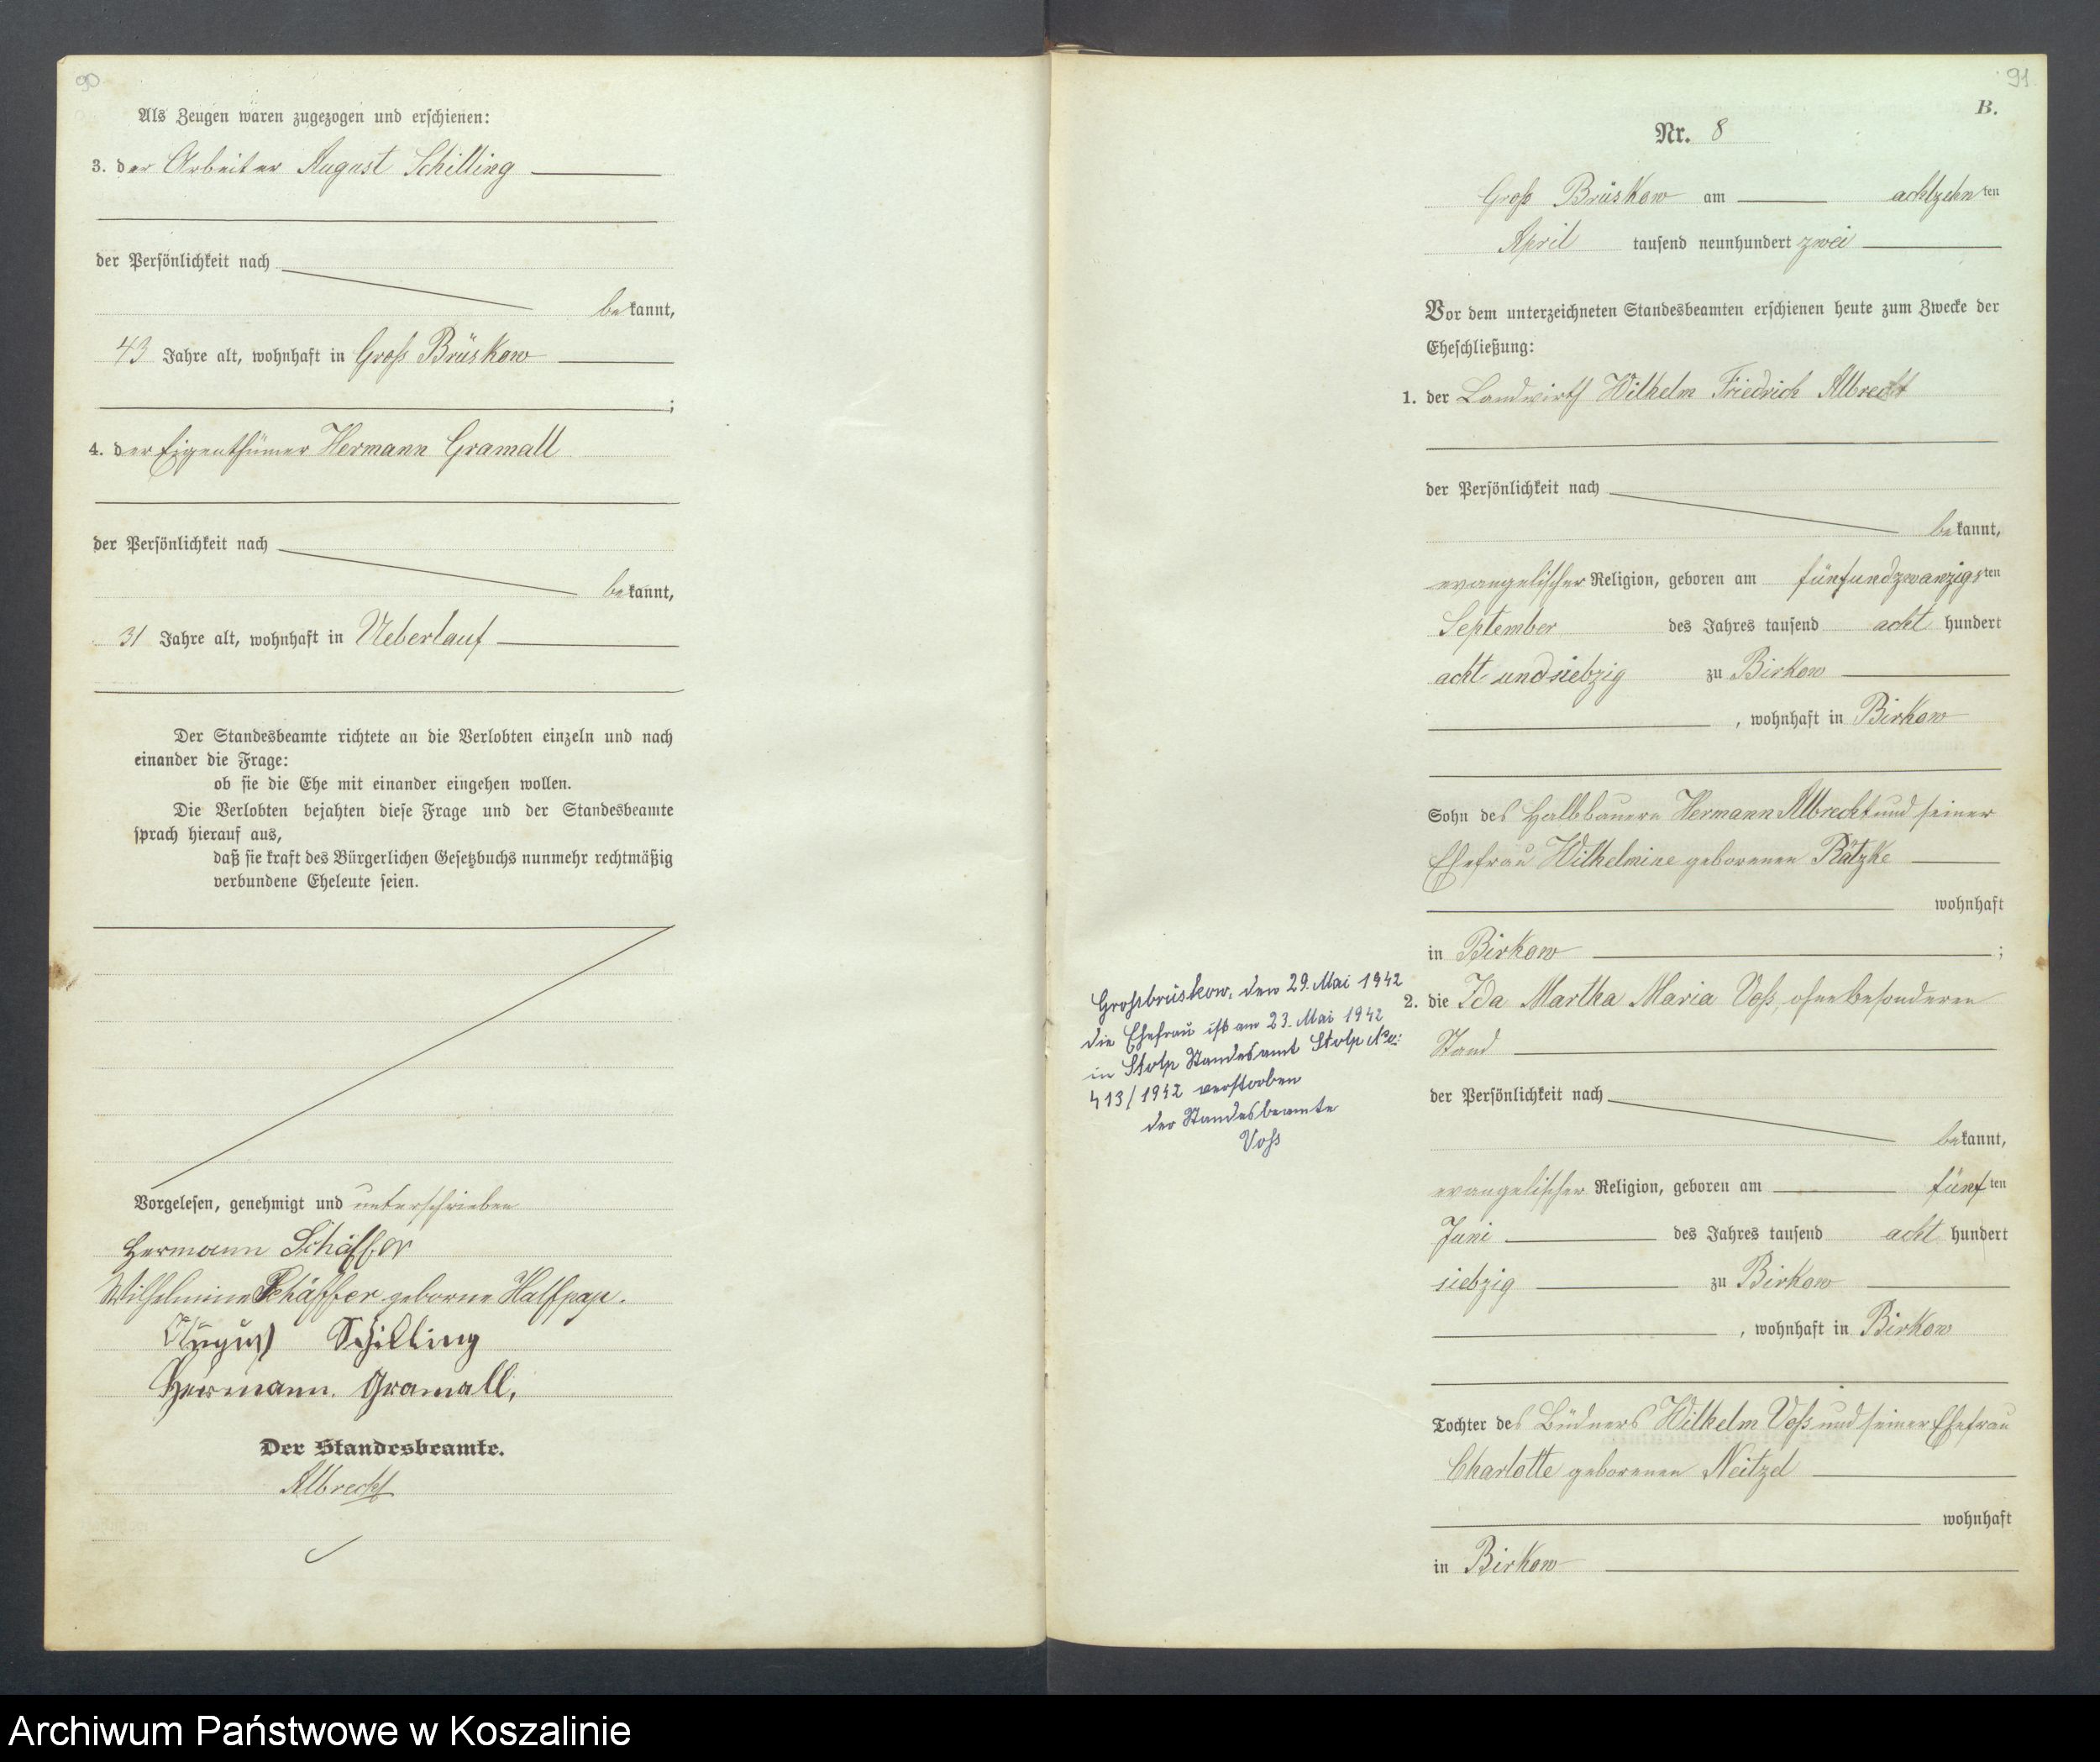 90
Als Zeugen waren zugezogen und erschienen:
3. der Arbeiter August Schilling
der Persönlichkeit nach
bekannt,
43 Jahre alt, wohnhaft in Groß Brüskow
;
4. der Eigenthümer Hermann Gramall
der Persönlichkeit nach
bekannt,
31 Jahre alt, wohnhaft in Ueberlauf
Der Standesbeamte richtete an die Verlobten einzeln und nach
einander die Frage:
ob sie die Ehe mit einander eingehen wollen.
Die Verlobten bejahten diese Frage und der Standesbeamte
sprach hierauf aus,
daß sie kraft des Bürgerlichen Gesetzbuchs nunmehr rechtmäßig
verbundene Eheleute seien.
Vorgelesen, genehmigt und unterschrieben
Hermann Schäffer
Wilhelmine Schäffer geborne Halfpap.
August Schilling
Hermann. Gramall.
Der Standesbeamte.
Albrecht
91
B.
Nr. 8
Groß Brüskow am achtzehnten
April tausend neunhundert zwei
Vor dem unterzeichneten Standesbeamten erschienen heute zum Zwecke der
Eheschließung:
1. der Landwirth Wilhelm Friedrich Albrecht
der Persönlichkeit nach
bekannt,
evangelischer Religion, geboren am fünfundzwanzigsten
September des Jahres tausend acht hundert
acht und siebzig zu Birkow
, wohnhaft in Birkow
Sohn des Halbbauern Hermann Albrecht und seiner
Ehefrau Wilhelmine geborenen Rätzke
wohnhaft
in Birkow ;
2. die Ida Martha Maria Voß, ohne besonderen
Stand
der Persönlichkeit nach
bekannt,
evangelischer Religion, geboren am fünften
Juni des Jahres tausend acht hundert
siebzig zu Birkow
, wohnhaft in Birkow
Tochter des Büdners Wilhelm Voß und seiner Ehefrau
Charlotte geborenen Neitzel
wohnhaft
in Birkow
Großbrüskow, den 29. Mai 1942
die Ehefrau ist am 23. Mai 1942
in Stolp Standesamt Stolp
413/1942 verstorben
der Standesbeamte
Voß
Archiwum Państwowe w Koszalinie